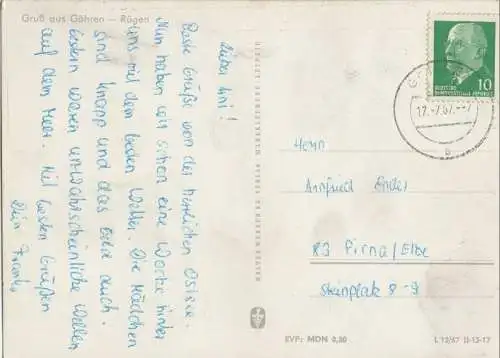 Gruß aus Göhren — Rügen
Lieber Arni!
Beste Grüße von der herrlichen Ostsee.
Nun haben wir schon eine Woche hinter
uns mit dem besten Wetter. Die Mädchen
sind knapp und das Geld auch.
Gestern waren unwahrscheinliche Wellen
auf dem Meer. Mit besten Grüßen
Dein Frank
10
17.-7.67.--7
b
Herrn
Arnfried Ender
83 Pirna/Elbe
Steinplatz 8-9
EVP: MDN 0,20
L 12/67 II-13-17